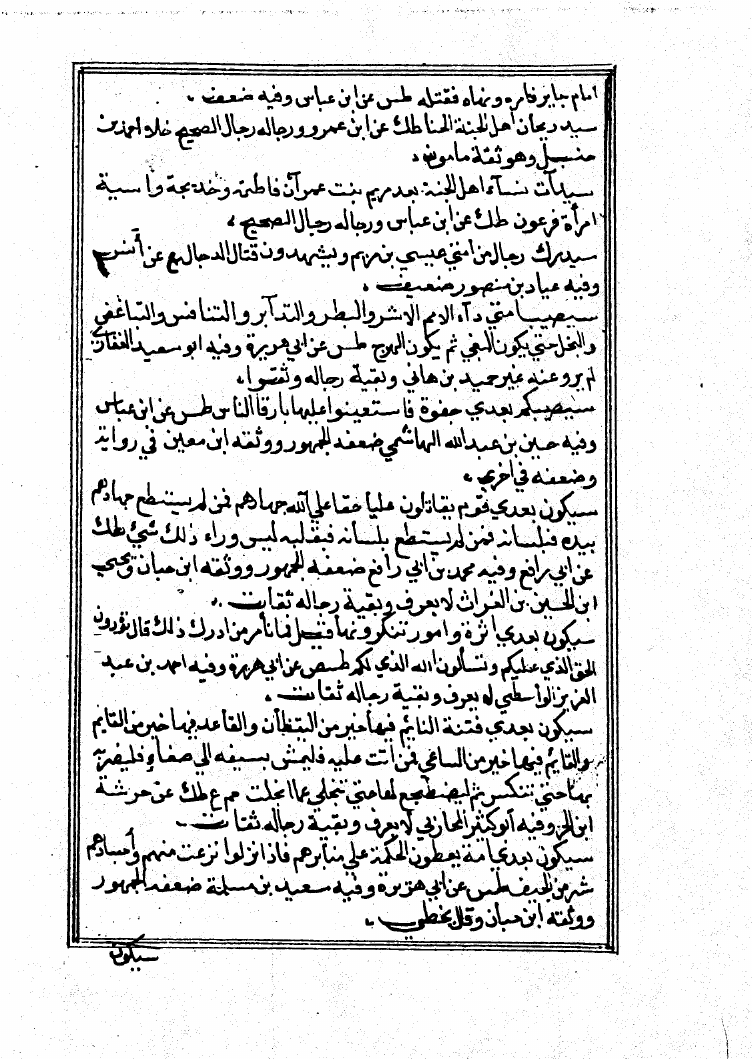 امام جاير فامره ونهاه فقتله طس عن ابن عباس وفيه ضعف .
سيد ريحان اهل الجنة الحنا طك عن ابن عمرو ورجاله رجال الصحيح خلا احمد بن
حنبل وهو ثقة مامون .
سيدات نسآء اهل الجنة بعد مريم بنت عمران فاطمة وخديجة واسية
امرأة فرعون طك عن ابن عباس ورجاله رجال الصحيح .
سيدرك رجال من امتي عيسي بن مريم ويشهدون قتال الدجال يع عن أنس
وفيه عباد بن منصور ضعيف .
سيصيب امتي دآء الامم الاشر والبطر والتدابر والتنافس والتباغض
والبخل حتي يكون البغي ثم يكون الهرج طس عن ابي هريرة وفيه ابو سعيد الغفاري
لم يرو عنه غير حميد بن هاني وبقية رجاله وثقوا .
سيصيبكم بعدي جفوة فاستعينوا عليها بارقا الناس طس عن ابن عباس
وفيه حسين بن عبد الله الهاشمي ضعفه الجمهور ووثقه ابن معين في رواية
وضعفه في اخري .
سيكون بعدي قوم يقاتلون عليا حقا علي الله جهادهم فمن لم يستطع جهادهم
بيده فبلسانه فمن لم يستطع بلسانه فبقلبه ليس وراء ذلك شئ طك
عن ابي رافع وفيه محمد بن ابي رافع ضعفه الجمهور ووثقه ابن حبان ويحيي
ابن الحسين بن الفرات لا يعرف وبقية رجاله ثقات .
سيكون بعدي اثرة وامور تنكرونها قيل فما تأمر من ادرك ذلك قال تؤدون
الحق الذي عليكم وتسألون الله الذي لكم طص عن ابي هريرة وفيه احمد بن عبد
العزيز الواسطي لم يعرف وبقية رجاله ثقات .
سيكون بعدي فتنة النائم فيها خير من اليقظان والقاعد فيها خير من القايم
والقايم فيها خير من الساعي فمن أتت عليه فليمش بسيفه الي صفاة فليضربه
بها حتي تنكسر ثم ليضطجع لها حتي تنجلي عما انجلت حم ع طك عن خرشة
ابن الحر وفيه أبو كثير المحاربي لا يعرف وبقية رجاله ثقات .
سيكون بعدي ايمة يعطون الحكمة علي منابرهم فاذا نزلوا نزعت منهم وأجسادهم
شر من الجيف طس عن ابي هريرة وفيه سعيد بن مسلمة ضعفه الجمهور
ووثقه ابن حبان وقال يخطي .
سيكون